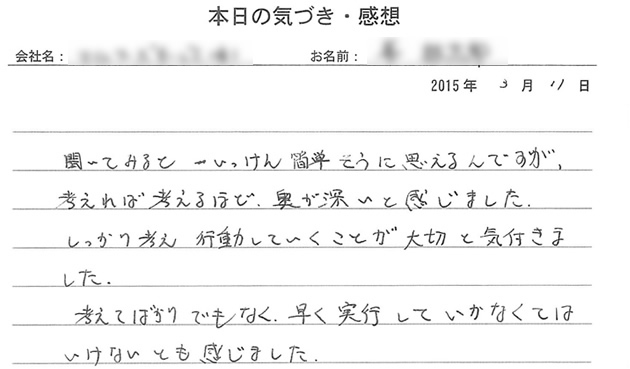 本日の気づき・感想
会社名：
お名前：
2015年 3月 11日
聞いてみると 一いっけん 簡単そうに思えるんですが、
考えれば考えるほど、奥が深いと感じました.
しっかり考え 行動していくことが大切と気付きま
した.
考えてばかりでもなく、早く実行していかなくては
いけないとも感じました.